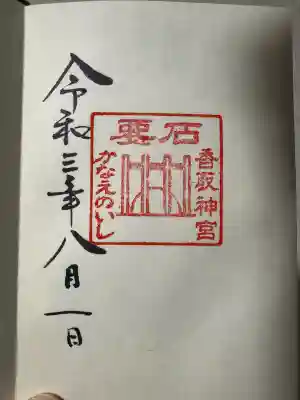 要石
香取神宮
かなえのいし
令和三年八月一日